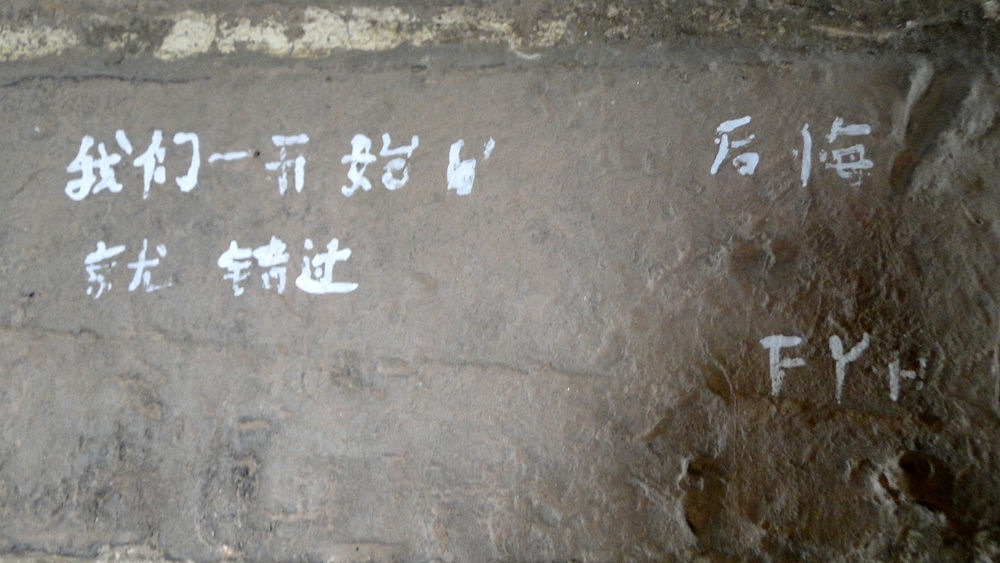 我们一开始 后悔
就错过
FYH